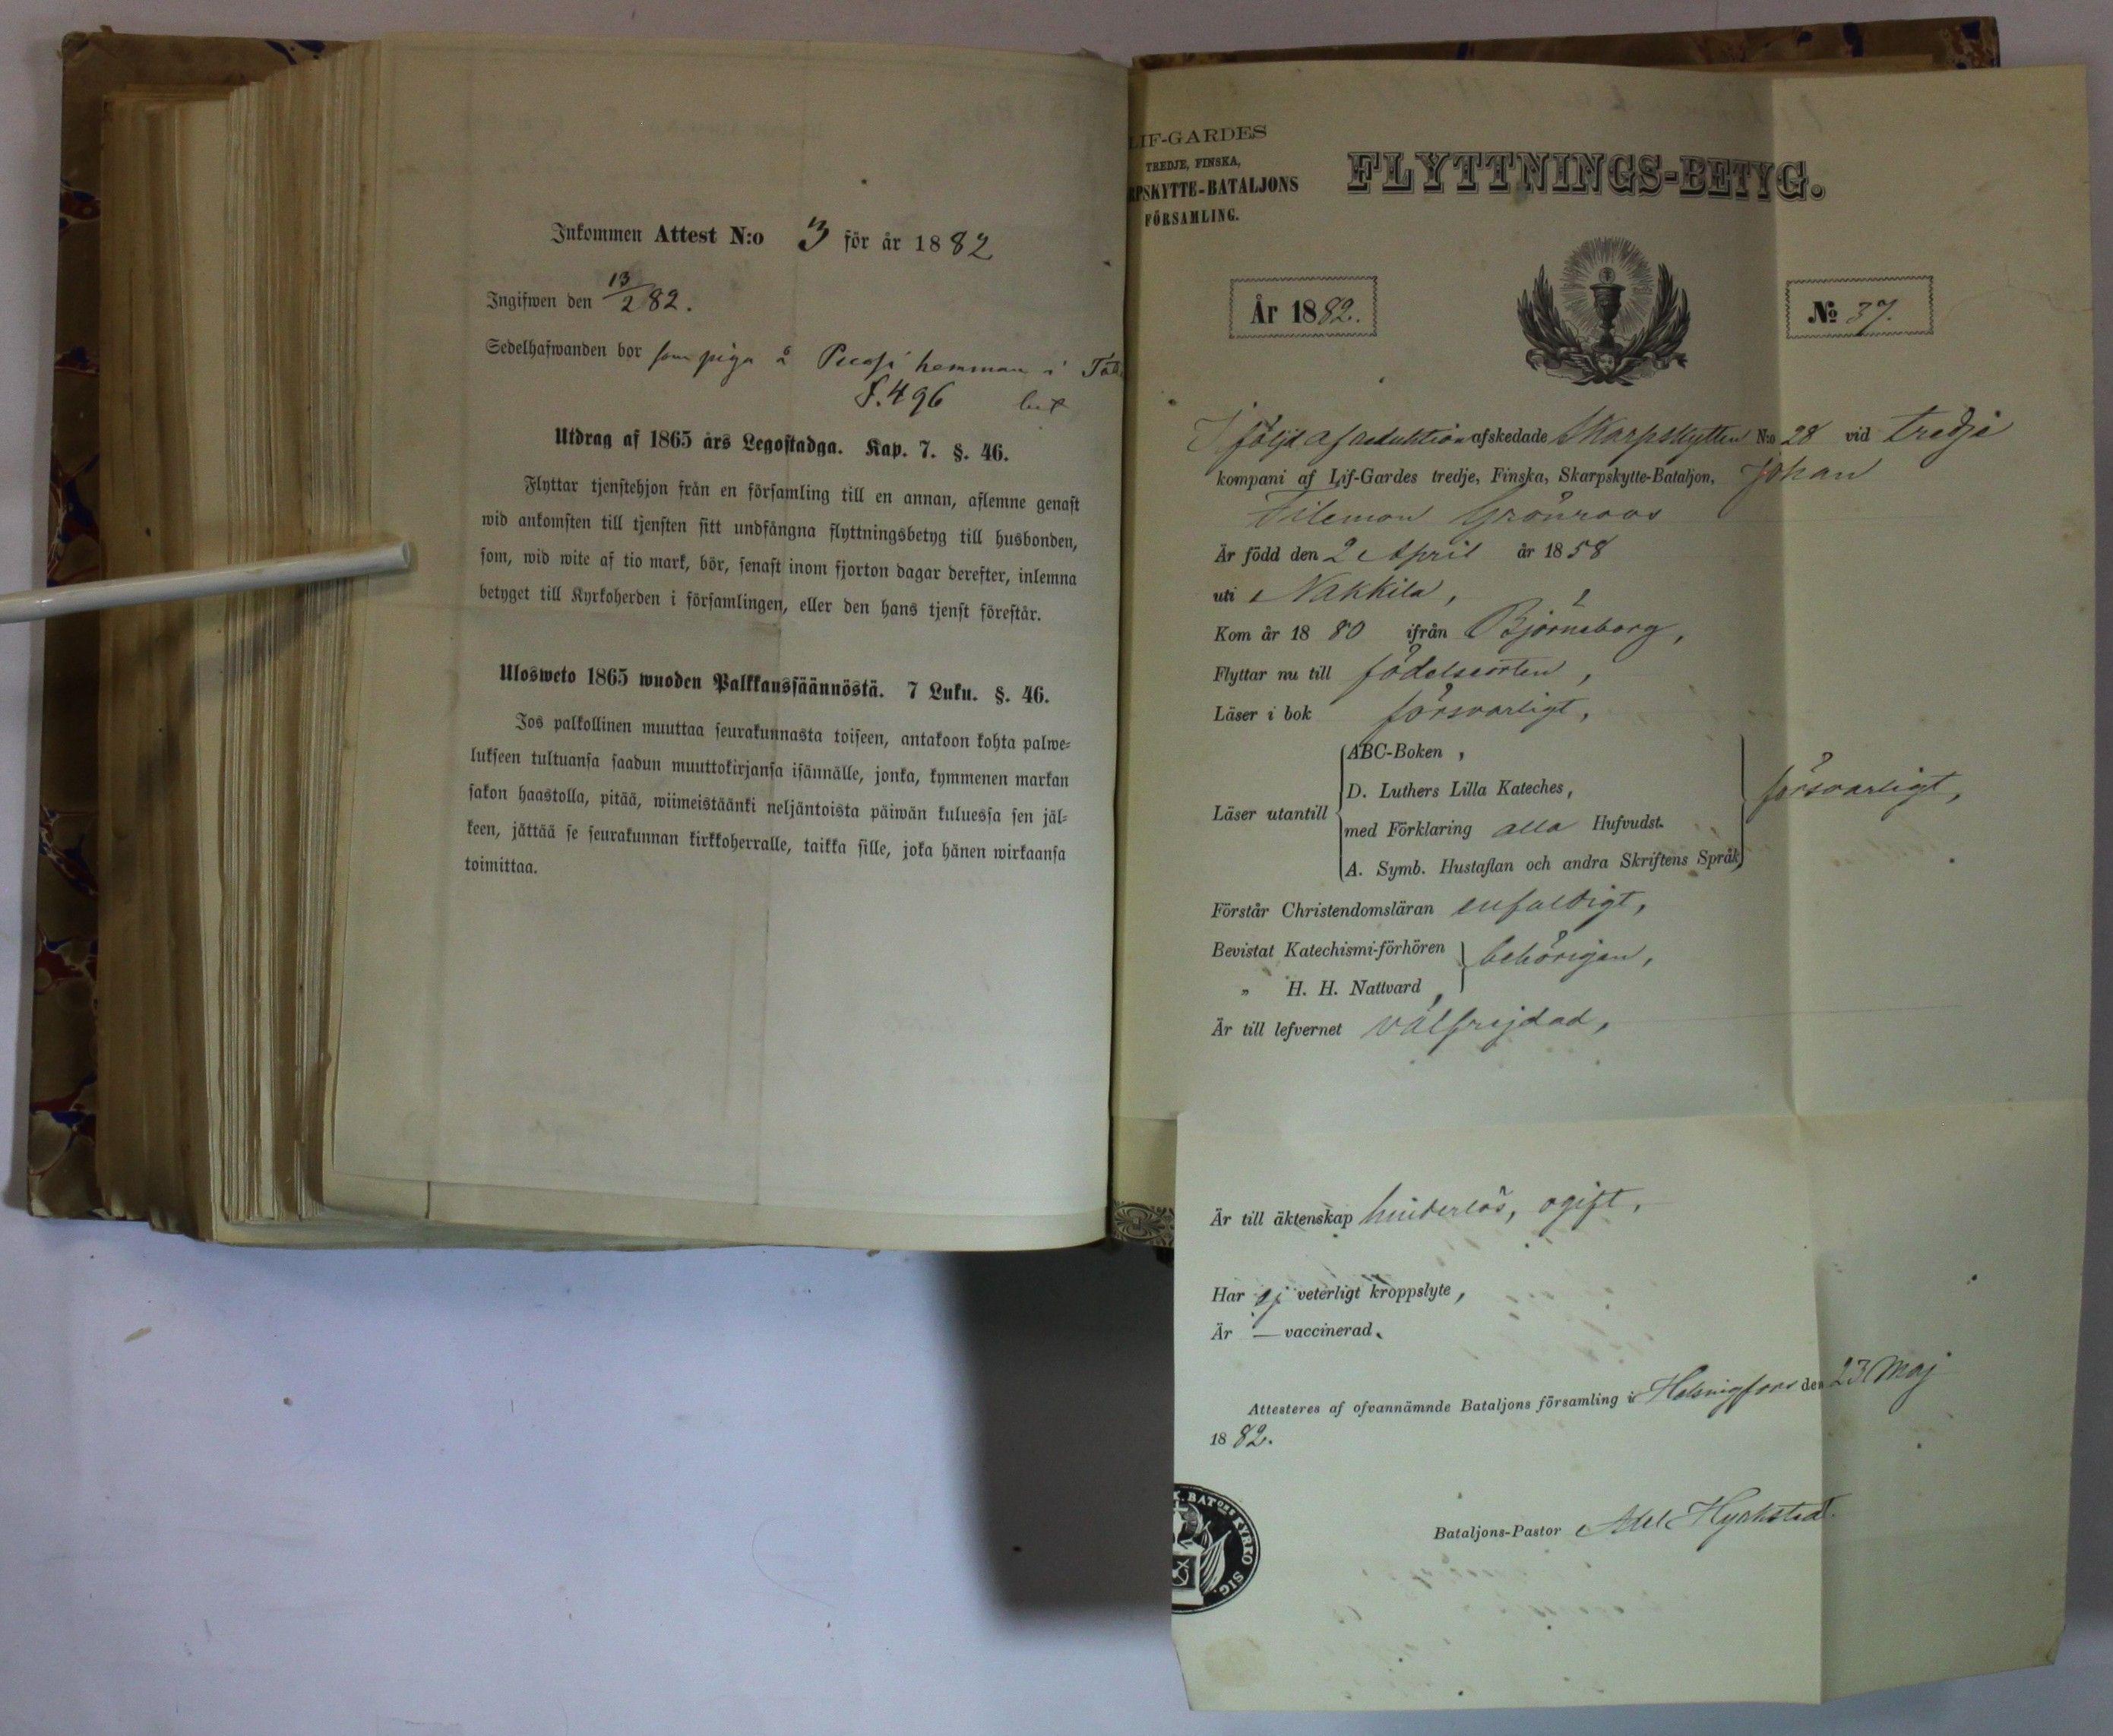 Inkommen Attest N:o 3 för år 1882
Ingifwen den 13/2 82.
Sedelhafwanden bor som piga å hemman i
S. 496
Utdrag af 1865 års Legostadga. Kap. 7. §. 46.
Flyttar tjenstehjon från en församling till en annan, aflemne genast
wid ankomsten till tjensten sitt undfångna flyttningsbetyg till husbonden,
som, wid wite af tio mark, bör, senast inom fjorton dagar derefter, inlemna
betyget till Kyrkoherden i församlingen, eller den hans tjenst förestår.
Ulosweto 1865 wuoden Palkkaussäännöstä. 7 Luku. §. 46.
Jos palkollinen muuttaa seurakunnasta toiseen, antakoon kohta palwe-
lukseen tultuansa saadun muuttokirjansa isännälle, jonka, kymmenen markan
sakon haastolla, pitää, wiimeistäänki neljäntoista päiwän kuluessa sen jäl-
keen, jättää se seurakunnan kirkkoherralle, taikka sille, joka hänen wirkaansa
toimittaa.
LIF-GARDES
TREDJE, FINSKA,
RPSKYTTE-BATALJONS
FÖRSAMLING.
FLYTTNINGS-BETYG.
År 1882.
No 37.
I följd af reduktion afskedade Skarpskytten N:o 28 vid tredje
kompani af Lif-Gardes tredje, Finska, Skarpskytte-Bataljon, Johan
Filemon Grönroos
Är född den 2 April år 1858
uti Nakkila,
Kom år 1880 ifrån Björneborg,
Flyttar nu till födelseorten,
Läser i bok försvarligt,
Läser utantill
ABC-Boken,
D. Luthers Lilla Kateches,
med Förklaring alla Hufvudst.
A. Symb. Hustaflan och andra Skriftens Språk
försvarligt,
Förstår Christendomsläran enfaldigt,
Bevistat Katechismi-förhören
„ H. H. Nattvard,
behörigen,
Är till lefvernet välfrejdad,
Är till äktenskap hinderlös, ogift,
Har ej veterligt kroppslyte,
Är — vaccinerad.
Attesteres af ofvannämnde Bataljons församling i Helsingfors den 23 Maj
1882.
BATons KYRKO SIG.
Bataljons-Pastor